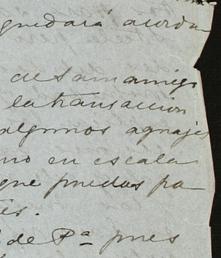 quedará acorda
desam amigo
la transaccion
algunos agnajes
mo en escala
que puedas pa
es.
de Pª pues